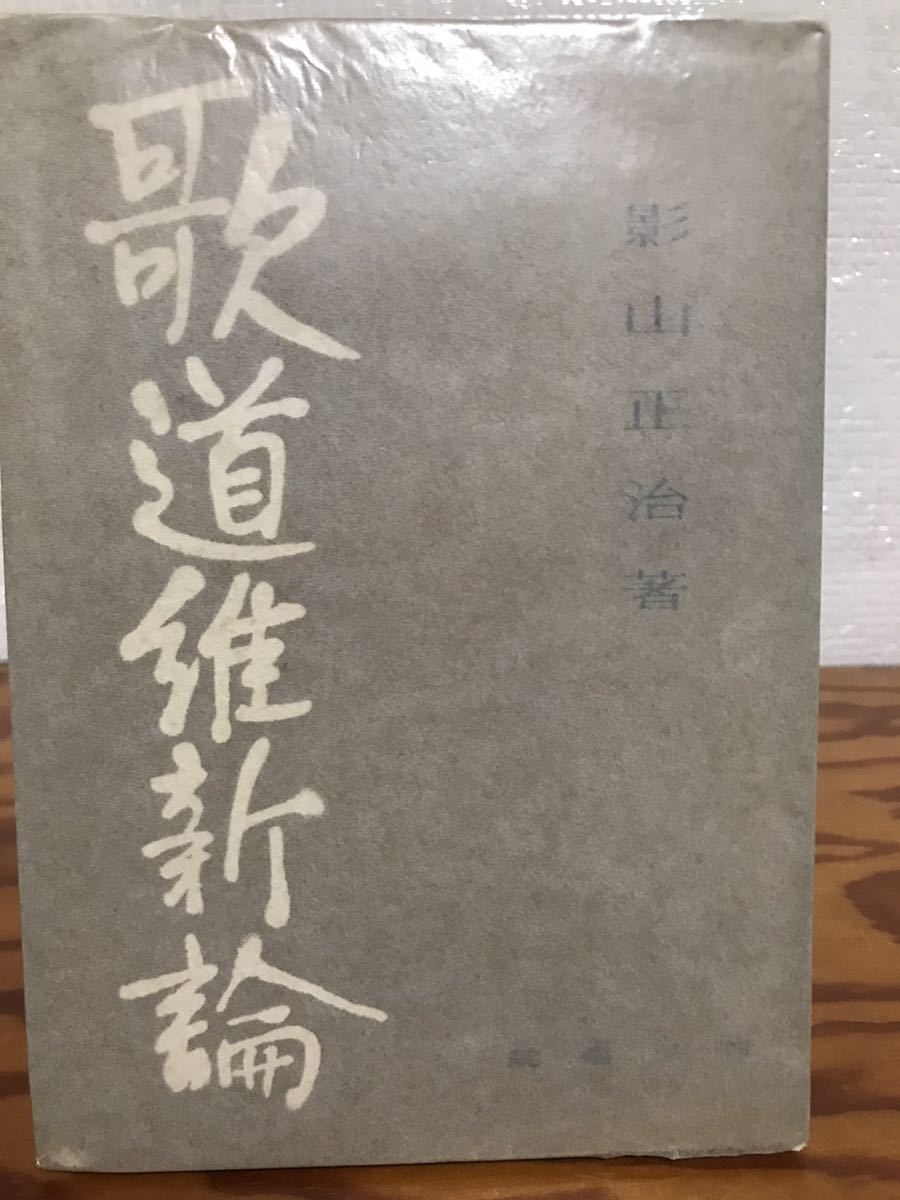 影山正治著
歌道維新論